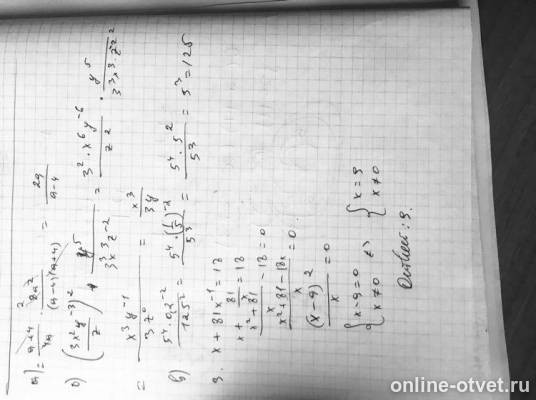 а) = \frac{a+4}{4a} \cdot \frac{8a^2}{(a-4)(a+4)} = \frac{2a}{a-4}
б) \left(\frac{3x^2y^{-3}}{z}\right)^2 \cdot \frac{y^5}{3^3x^3z^{-2}} = \frac{3^2 \cdot x^6y^{-6}}{z^2} \cdot \frac{y^5}{3^3x^3 \cdot z^{-2}}
= \frac{x^3y^{-1}}{3z^0} = \frac{x^3}{3y}
в) \frac{5^4 \cdot 0,2^{-2}}{125} = \frac{5^4 \cdot (\frac{1}{5})^{-2}}{5^3} = \frac{5^4 \cdot 5^2}{5^3} = 5^3 = 125
3. x + 81x^{-1} = 18
x + \frac{81}{x} = 18
\frac{x^2+81}{x} - 18 = 0
\frac{x^2+81-18x}{x} = 0.
\frac{(x-9)^2}{x} = 0
\begin{cases} x-9=0 \\ x≠0 \end{cases} ⇔ \begin{cases} x=9 \\ x≠0 \end{cases}
Ответ: 9.
online-otvet.ru